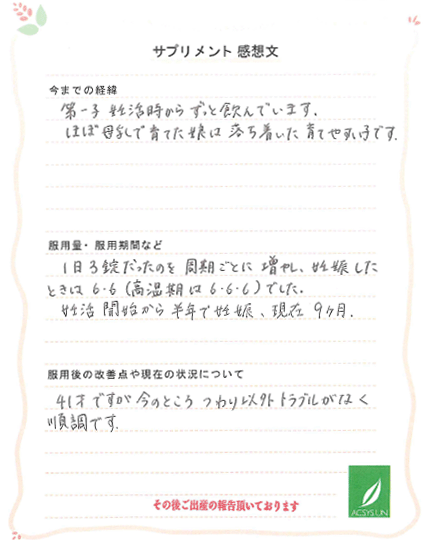 サプリメント 感想文
今までの経緯
第一子 妊活時から ずっと飲んでいます。
ほぼ母乳で育てた娘は 落ち着いた 育てやすい子です。
服用量・服用期間など
1日3錠だったのを 周期ごとに 増やし、妊娠した
ときは 6・6 (高温期は 6・6・6) でした。
妊活 開始から 半年で妊娠、現在 9ヶ月。
服用後の改善点や現在の状況について
41才ですが 今のところ つわり以外トラブルがなく
順調です。
その後ご出産の報告頂いております
ACSYS UN